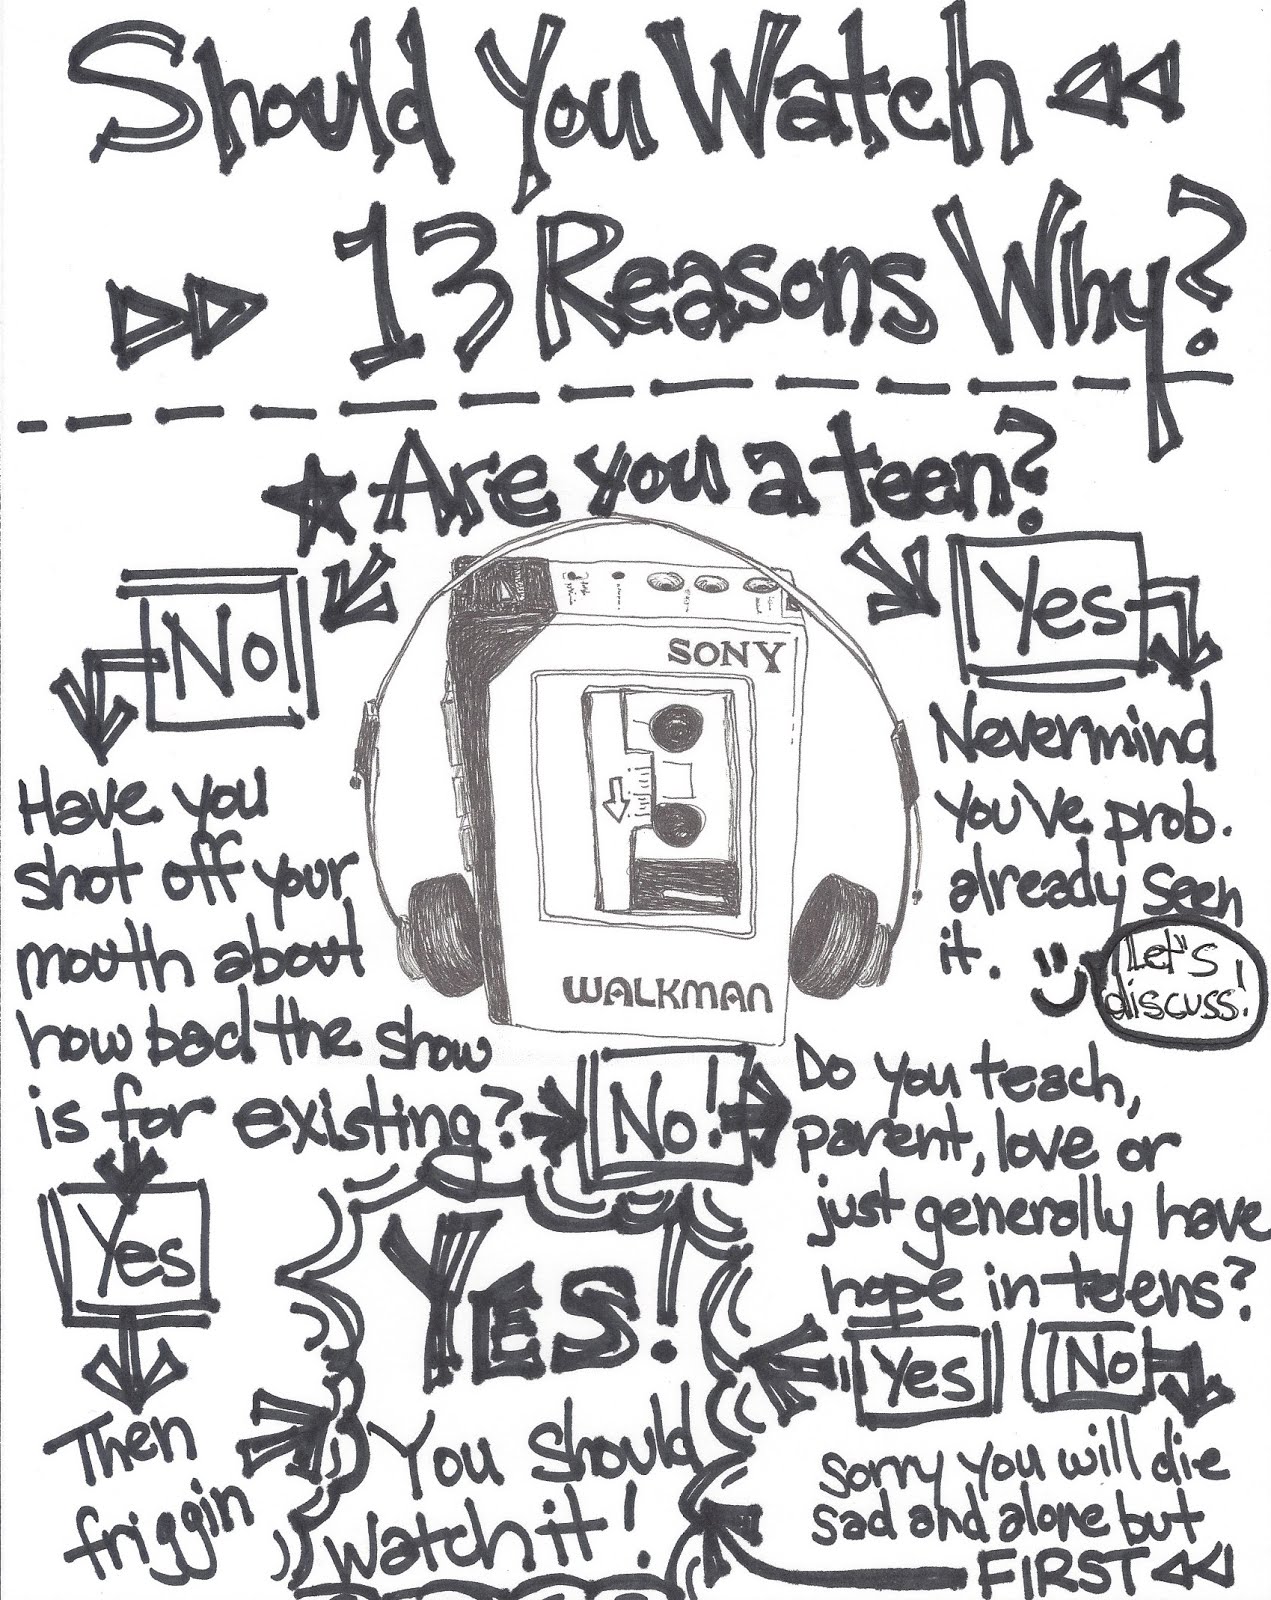 Should You Watch
13 Reasons Why?
Are you a teen?
No
Yes
Have you
shot off your
mouth about
how bad the show
is for existing?
Nevermind
you've prob.
already seen
it.
Let's
discuss!
SONY
WALKMAN
No!
Do you teach,
parent, love or
just generally have
hope in teens?
Yes
No
Yes
Then
friggin
YES!
You should
watch it!
Sorry you will die
sad and alone but
FIRST